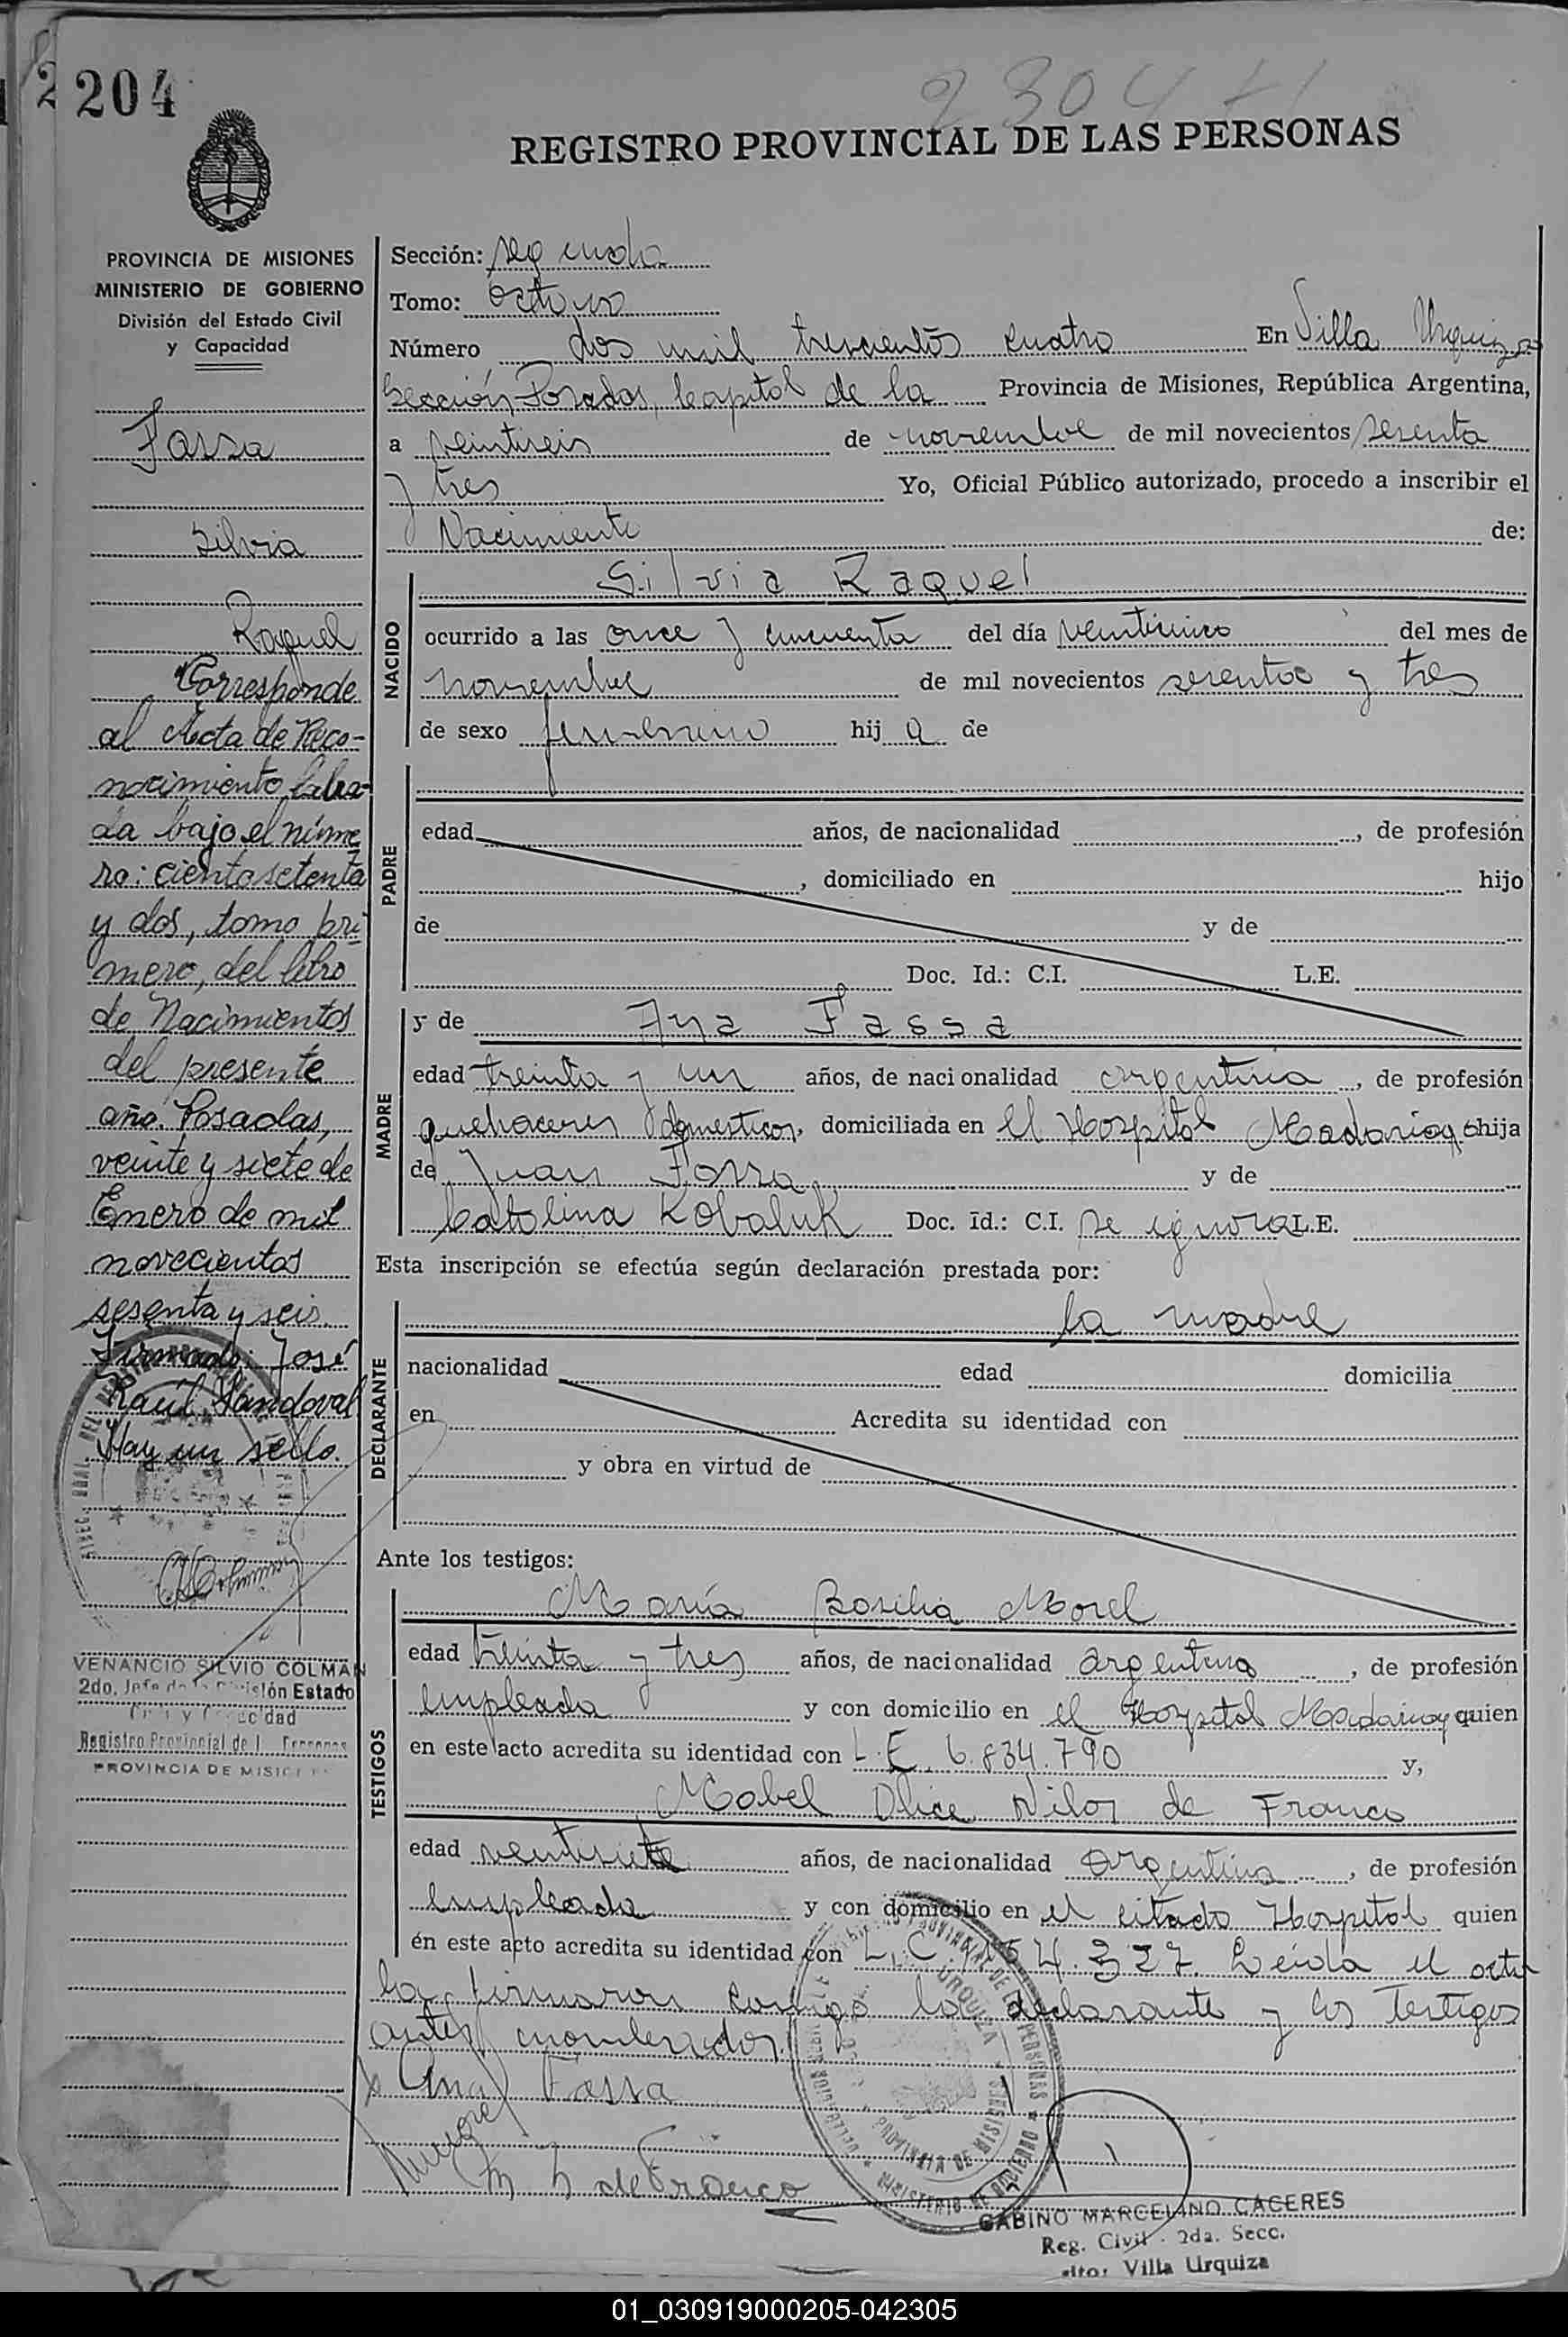 204
2304
REGISTRO PROVINCIAL DE LAS PERSONAS
PROVINCIA DE MISIONES
MINISTERIO DE GOBIERNO
División del Estado Civil
y Capacidad
Fassa
Silvia
Raquel
Corresponde
al Acta de Reco-
nocimiento, labra-
da bajo el núme
ro: ciento setenta
y dos, tomo pri
mero, del libro
de Nacimientos
del presente
año. Posadas,
veinte y siete de
Enero de mil
novecientos
sesenta y seis.
Firmado: José
Raúl Sandoval
Hay un sello.
VENANCIO SILVIO COLMAN
2do. Jefe de la División Estado
Civil y Capacidad
Registro Provincial de l Personas
PROVINCIA DE MISIONES
Sección: segunda
Tomo: octavo
Número dos mil trescientos cuatro En Villa Urquiza
Sección Posadas, Capital de la Provincia de Misiones, República Argentina,
a veintiseis de noviembre de mil novecientos sesenta
y tres Yo, Oficial Público autorizado, procedo a inscribir el
Nacimiento de:
NACIDO
Silvia Raquel
ocurrido a las once y cincuenta del día veinticinco del mes de
noviembre de mil novecientos sesenta y tres
de sexo femenino hij a de
PADRE
edad años, de nacionalidad , de profesión
, domiciliado en hijo
de y de
Doc. Id.: C.I. L.E.
MADRE
y de Ana Fassa
edad treinta y un años, de nacionalidad argentina , de profesión
quehaceres domesticos, domiciliada en el Hospital Madariaga hija
de Juan Fassa y de
Catalina Kobaluk Doc. Id.: C.I. se ignora L.E.
Esta inscripción se efectúa según declaración prestada por:
DECLARANTE
la madre
nacionalidad edad domicilia
en Acredita su identidad con
y obra en virtud de
Ante los testigos:
TESTIGOS
María Basilia Morel
edad treinta y tres años, de nacionalidad argentina , de profesión
empleada y con domicilio en el Hospital Madariaga quien
en este acto acredita su identidad con L.E. 6.834.790 y,
Mabel Alice de Franco
edad veintisiete años, de nacionalidad argentina , de profesión
empleada y con domicilio en el citado Hospital quien
en este acto acredita su identidad con L.C. 154.327. Leída el acta
la firmaron conmigo la declarante y los testigos
antes nombrados.
Ana Fassa
M de Franco
GABINO MARCELINO CACERES
Reg. Civil - 2da. Secc.
Villa Urquiza
01_030919000205-042305